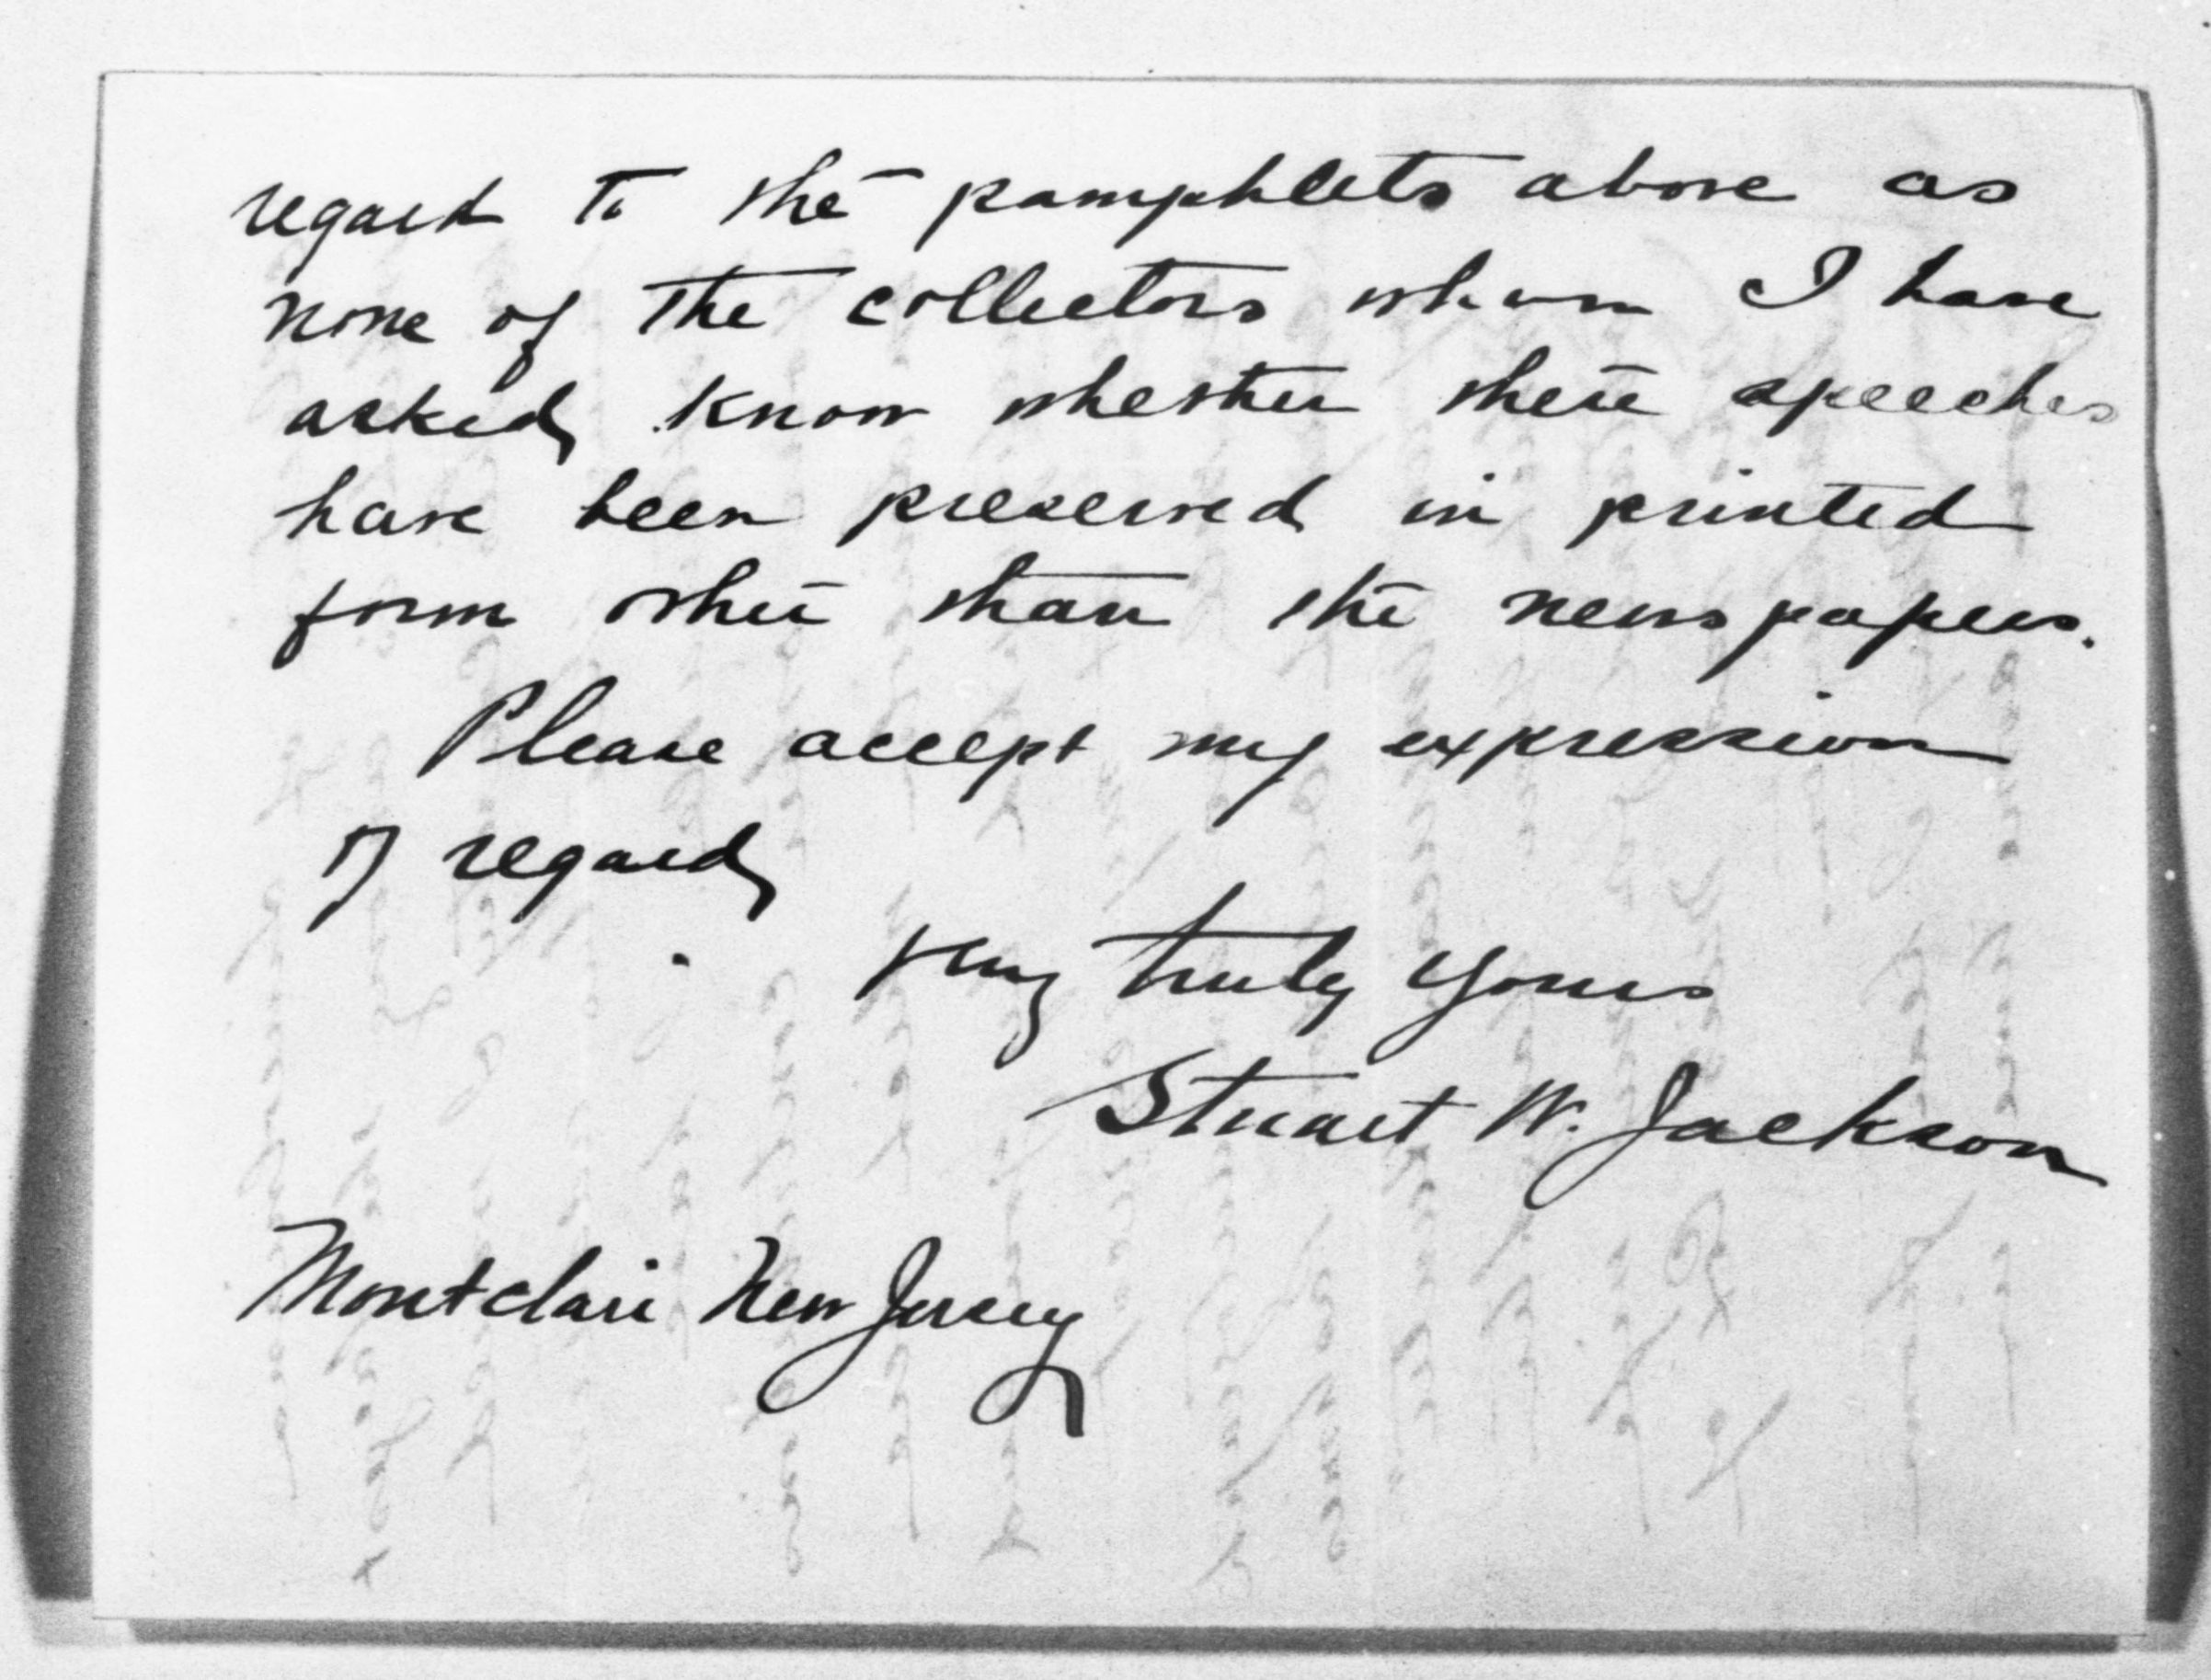 regard to the pamphlets above as
none of the collectors whom I have
asked, know whether these speeches
have been preserved in printed
form other than the newspapers.
Please accept my expression
of regard,
Very truly yours
Stuart W. Jackson
Montclair New Jersey